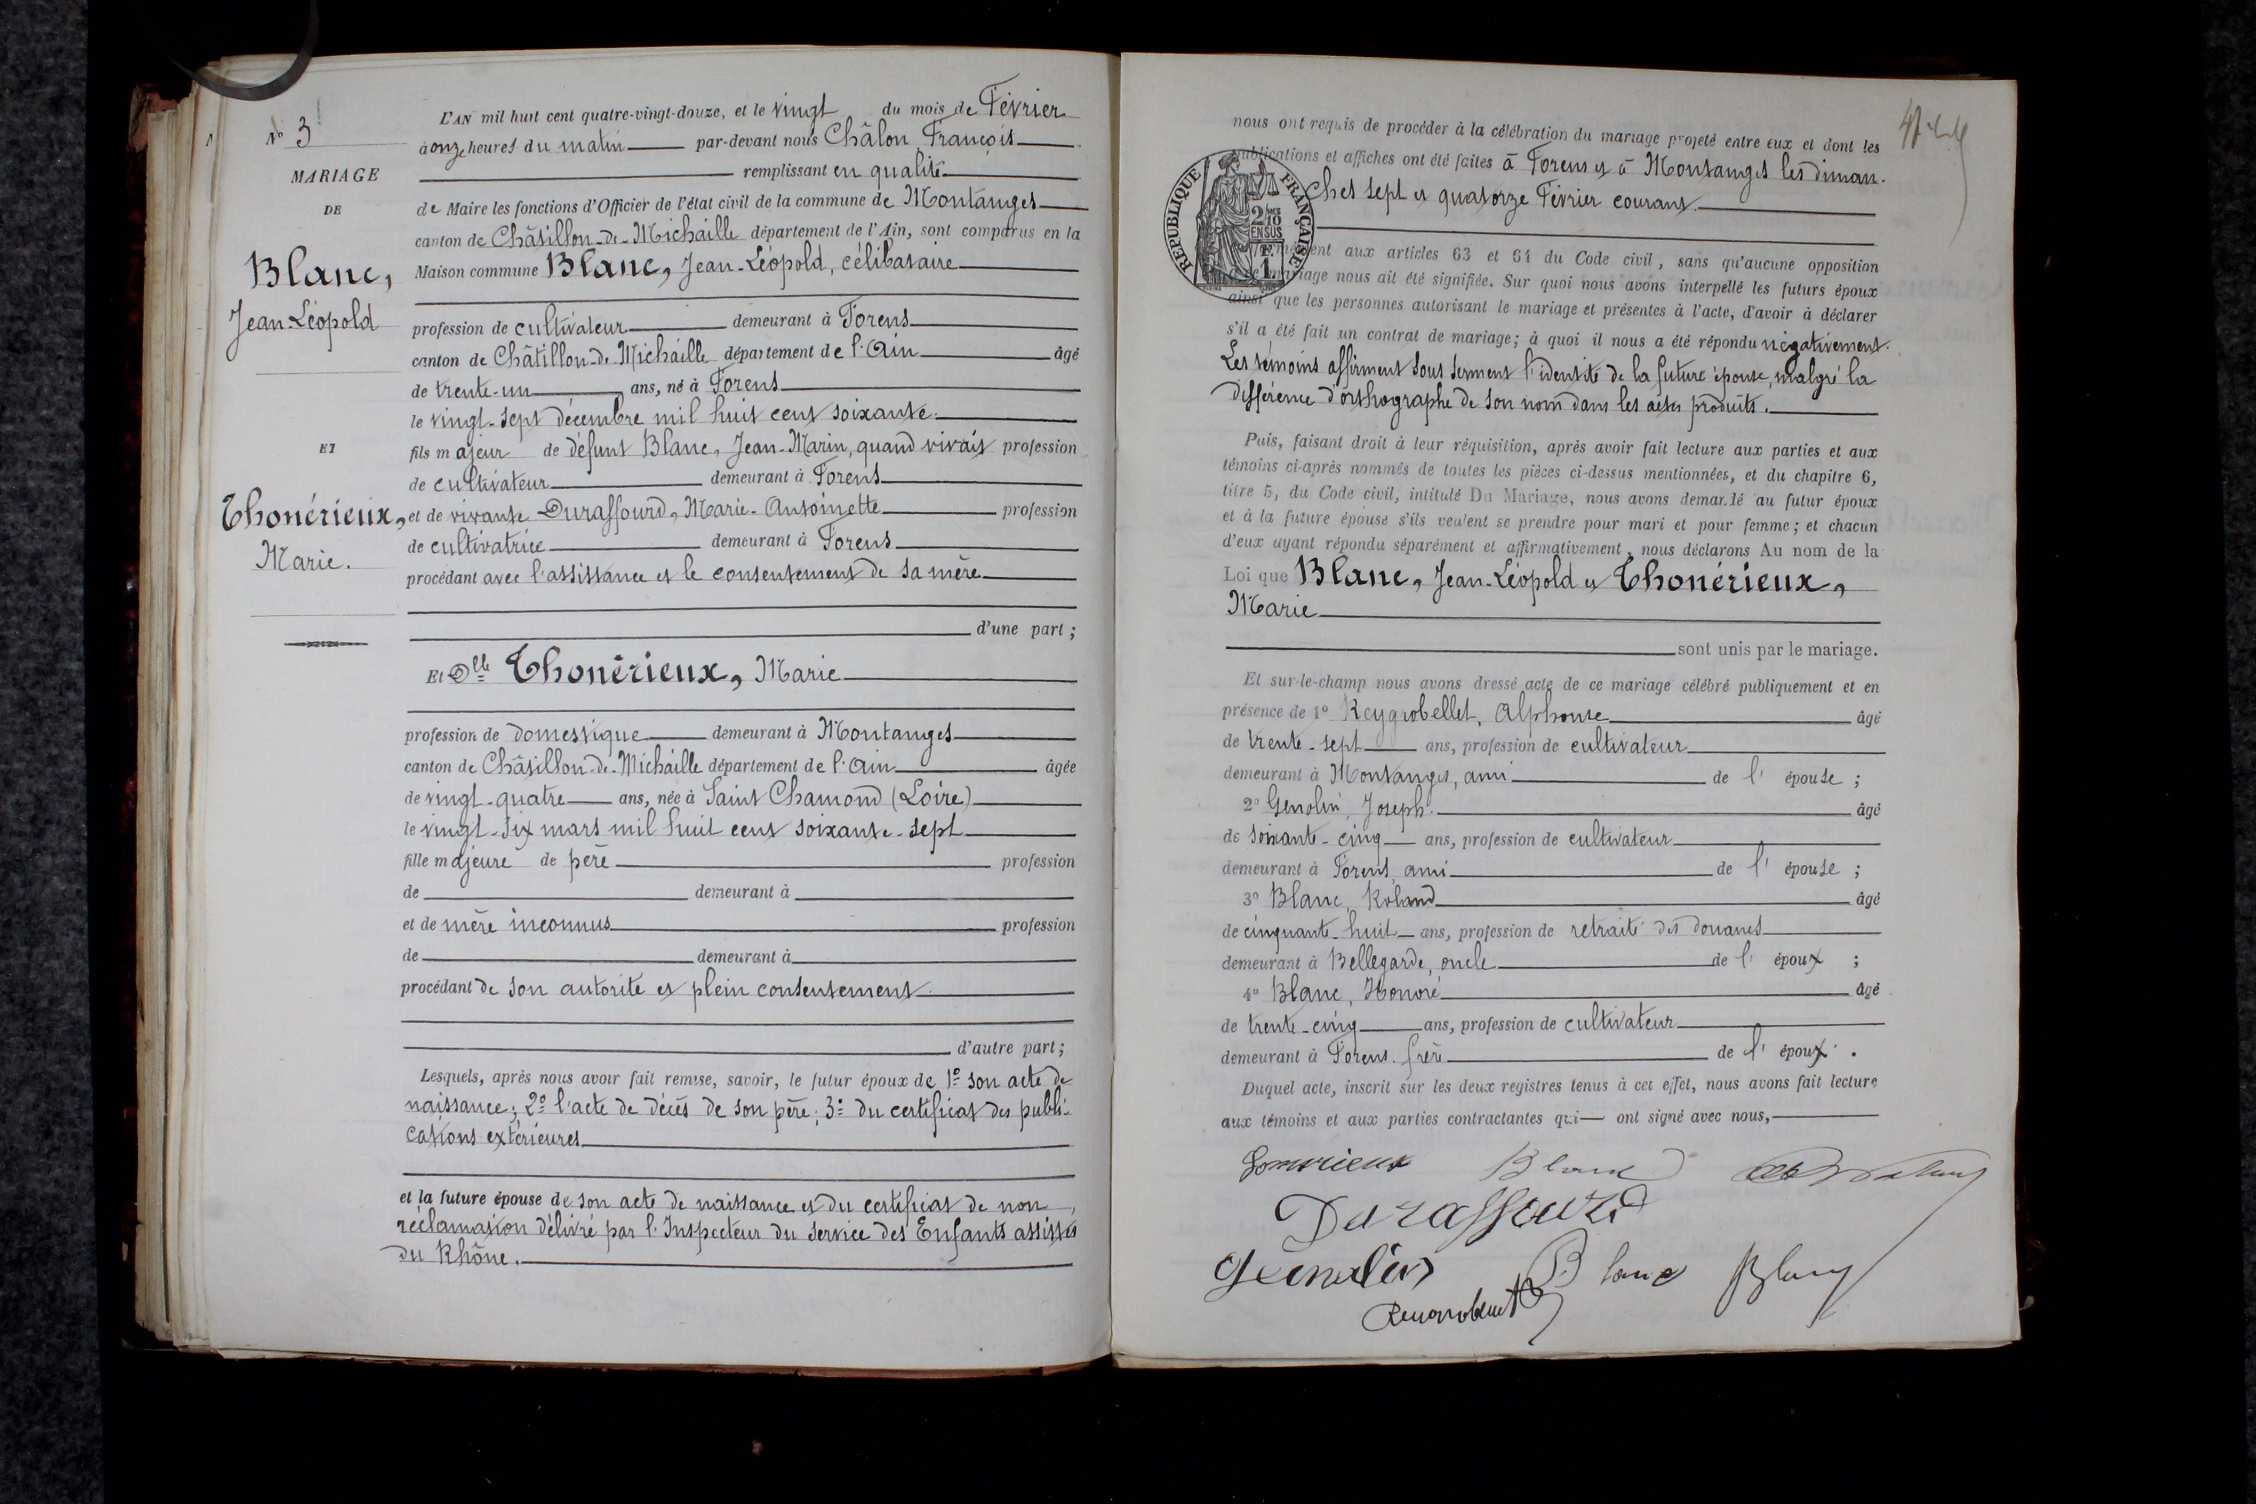 N° 3
MARIAGE
DE
Blanc,
Jean-Léopold
ET
Thonérieux,
Marie.
L'AN mil huit cent quatre-vingt-douze, et le vingt du mois de Février
à onze heures du matin par-devant nous Châlon, François
remplissant en qualité
de Maire les fonctions d'Officier de l'état civil de la commune de Montanges
canton de Châtillon-de-Michaille département de l'Ain, sont comparus en la
Maison commune Blanc, Jean-Léopold, célibataire
profession de cultivateur demeurant à Forens
canton de Châtillon-de-Michaille département de l'Ain âgé
de trente-un ans, né à Forens
le vingt-sept décembre mil huit cent soixante
fils majeur de défunt Blanc, Jean-Marin, quand vivait profession
de cultivateur demeurant à Forens
et de vivante Duraffourd, Marie-Antoinette profession
de cultivatrice demeurant à Forens
procédant avec l'assistance et le consentement de sa mère
d'une part;
Et Dlle Thonérieux, Marie
profession de domestique demeurant à Montanges
canton de Châtillon-de-Michaille département de l'Ain âgée
de vingt-quatre ans, née à Saint Chamond (Loire)
le vingt-six mars mil huit cent soixante-sept
fille majeure de père profession
de demeurant à
et de mère inconnus profession
de demeurant à
procédant de son autorité et plein consentement
d'autre part;
Lesquels, après nous avoir fait remise, savoir, le futur époux de 1° son acte de
naissance; 2° l'acte de décès de son père; 3° du certificat des publi-
cations extérieures
et la future épouse de son acte de naissance et du certificat de non
réclamation délivré par l'Inspecteur du service des Enfants assistés
du Rhône.
nous ont requis de procéder à la célébration du mariage projeté entre eux et dont les
publications et affiches ont été faites à Forens et à Montanges les diman-
ches sept et quatorze Février courant.
RÉPUBLIQUE FRANÇAISE
2 10
EN SUS
1F.
aux articles 63 et 64 du Code civil, sans qu'aucune opposition
mariage nous ait été signifiée. Sur quoi nous avons interpellé les futurs époux
ainsi que les personnes autorisant le mariage et présentes à l'acte, d'avoir à déclarer
s'il a été fait un contrat de mariage; à quoi il nous a été répondu négativement.
Les témoins affirment sous serment l'identité de la future épouse, malgré la
différence d'orthographe de son nom dans les actes produits.
Puis, faisant droit à leur réquisition, après avoir fait lecture aux parties et aux
témoins ci-après nommés de toutes les pièces ci-dessus mentionnées, et du chapitre 6,
titre 5, du Code civil, intitulé Du Mariage, nous avons demandé au futur époux
et à la future épouse s'ils veulent se prendre pour mari et pour femme; et chacun
d'eux ayant répondu séparément et affirmativement, nous déclarons Au nom de la
Loi que Blanc, Jean-Léopold et Thonérieux,
Marie
sont unis par le mariage.
Et sur-le-champ nous avons dressé acte de ce mariage célébré publiquement et en
présence de 1° Reygrobellet, Alphonse âgé
de trente-sept ans, profession de cultivateur
demeurant à Montanges, ami de l'épouse;
2° Genolin, Joseph. âgé
de soixante-cinq ans, profession de cultivateur
demeurant à Forens, ami de l'épouse;
3° Blanc, Roland âgé
de cinquante-huit ans, profession de retraité des douanes
demeurant à Bellegarde, oncle de l'époux;
4° Blanc, Honoré âgé
de trente-cinq ans, profession de cultivateur
demeurant à Forens. frère de l'époux.
Duquel acte, inscrit sur les deux registres tenus à cet effet, nous avons fait lecture
aux témoins et aux parties contractantes qui ont signé avec nous,
Blanc
Duraffourd
Genolin Blanc Blanc